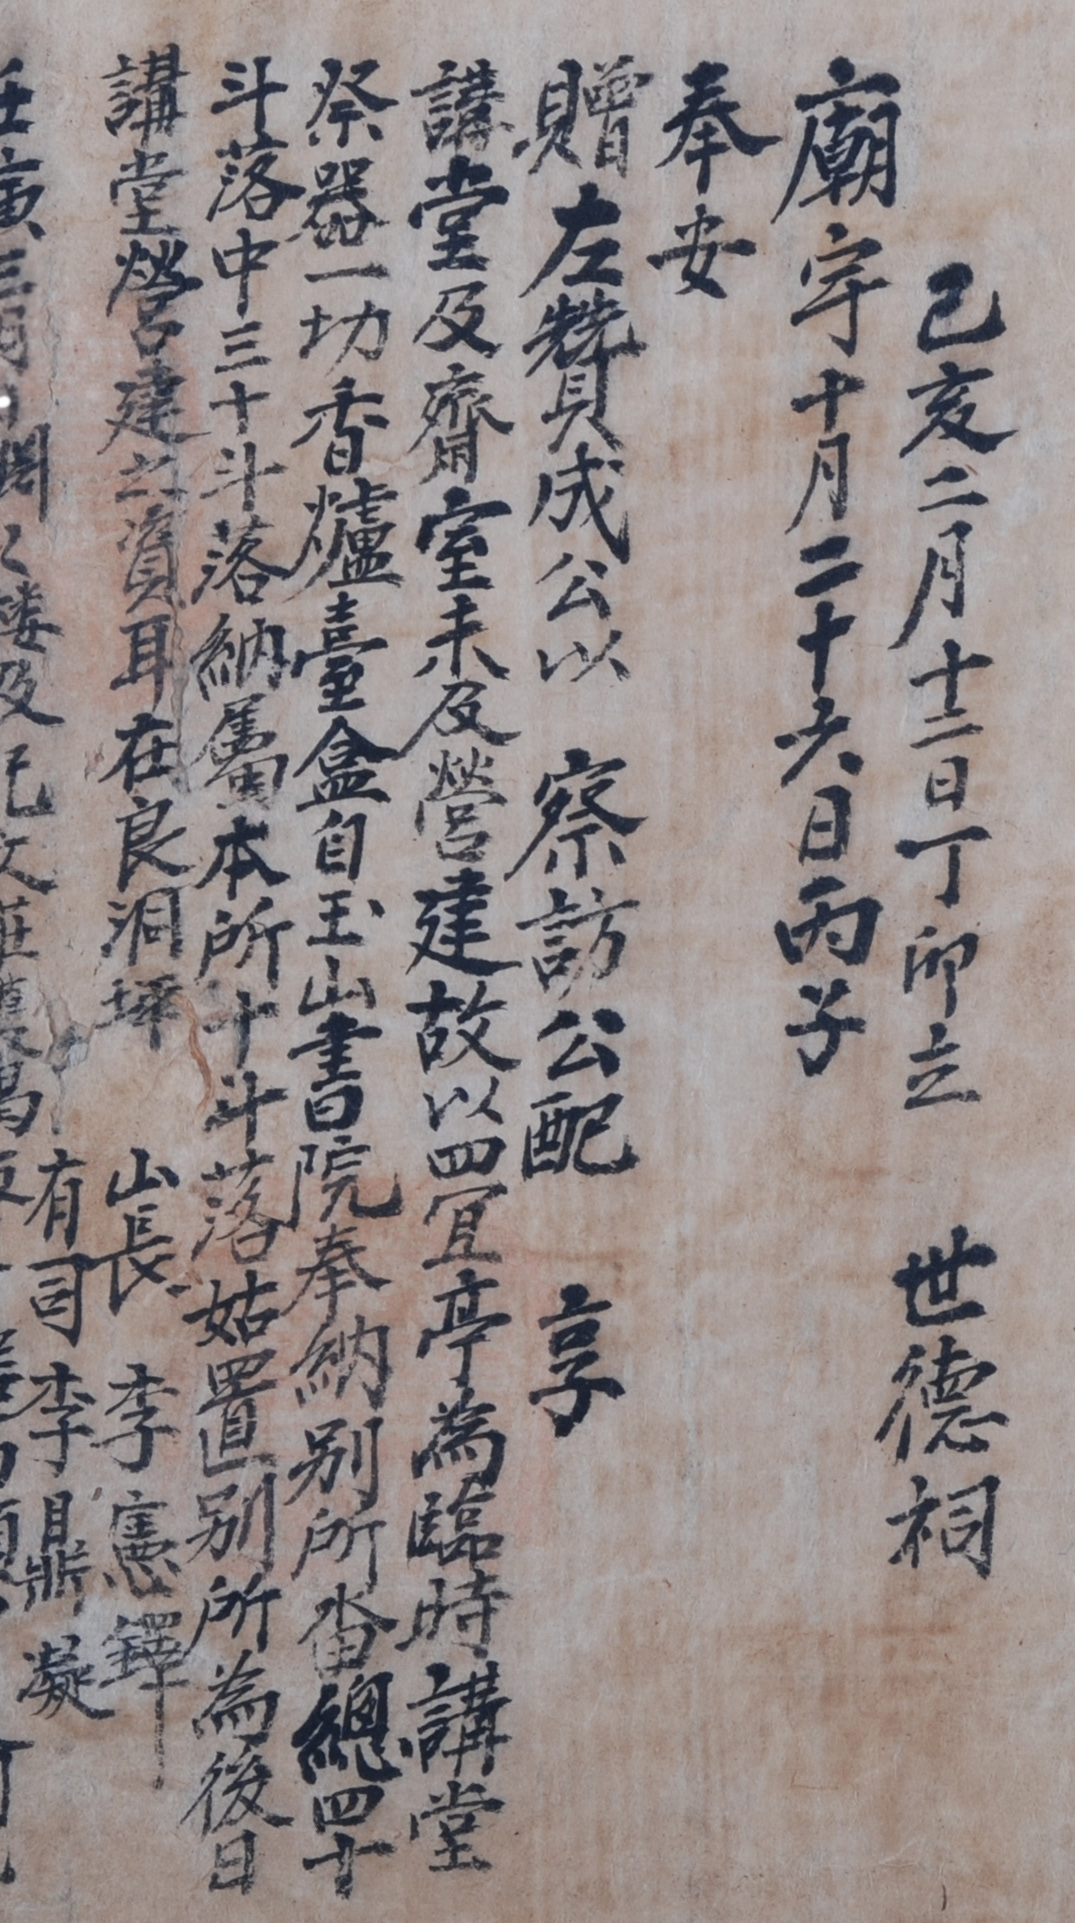 己亥二月十二日丁卯立 世德祠
廟宇十月二十六日丙子
奉安
贈左贊成公以 察訪公配 享
講堂及齋室未及營建故以四宜亭為臨時講堂
祭器一切香爐臺盒自玉山書院奉納別所畓總四十
斗落中三十斗落納屬本所十斗落姑置別所為後日
講堂營建之資耳在良洞坪 山長 李憲鐸
有司 李鼎凝